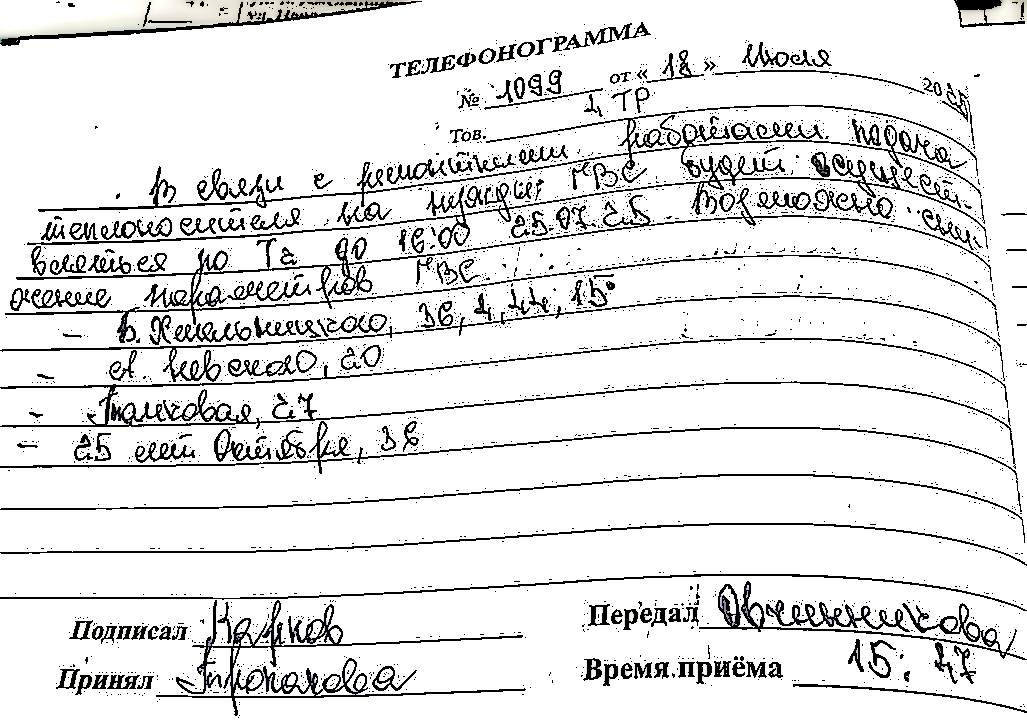 ТЕЛЕФОНОГРАММА
№ 1099 от « 18 » июля 2025
Тов. 4 ТР
В связи с ремонтными работами подача
теплоносителя на нужды ГВС будет осущест-
вляться по Та до 16:00 25.07.25. Возможно сни-
жение параметров ГВС
- Б. Хмельницкого, 36, 4, 44, 15
- А. Невского, 20
- Танковая, 27
- 25 лет Октября, 36
Подписал Карков
Передал Овчинникова
Принял
Время приёма 15:47